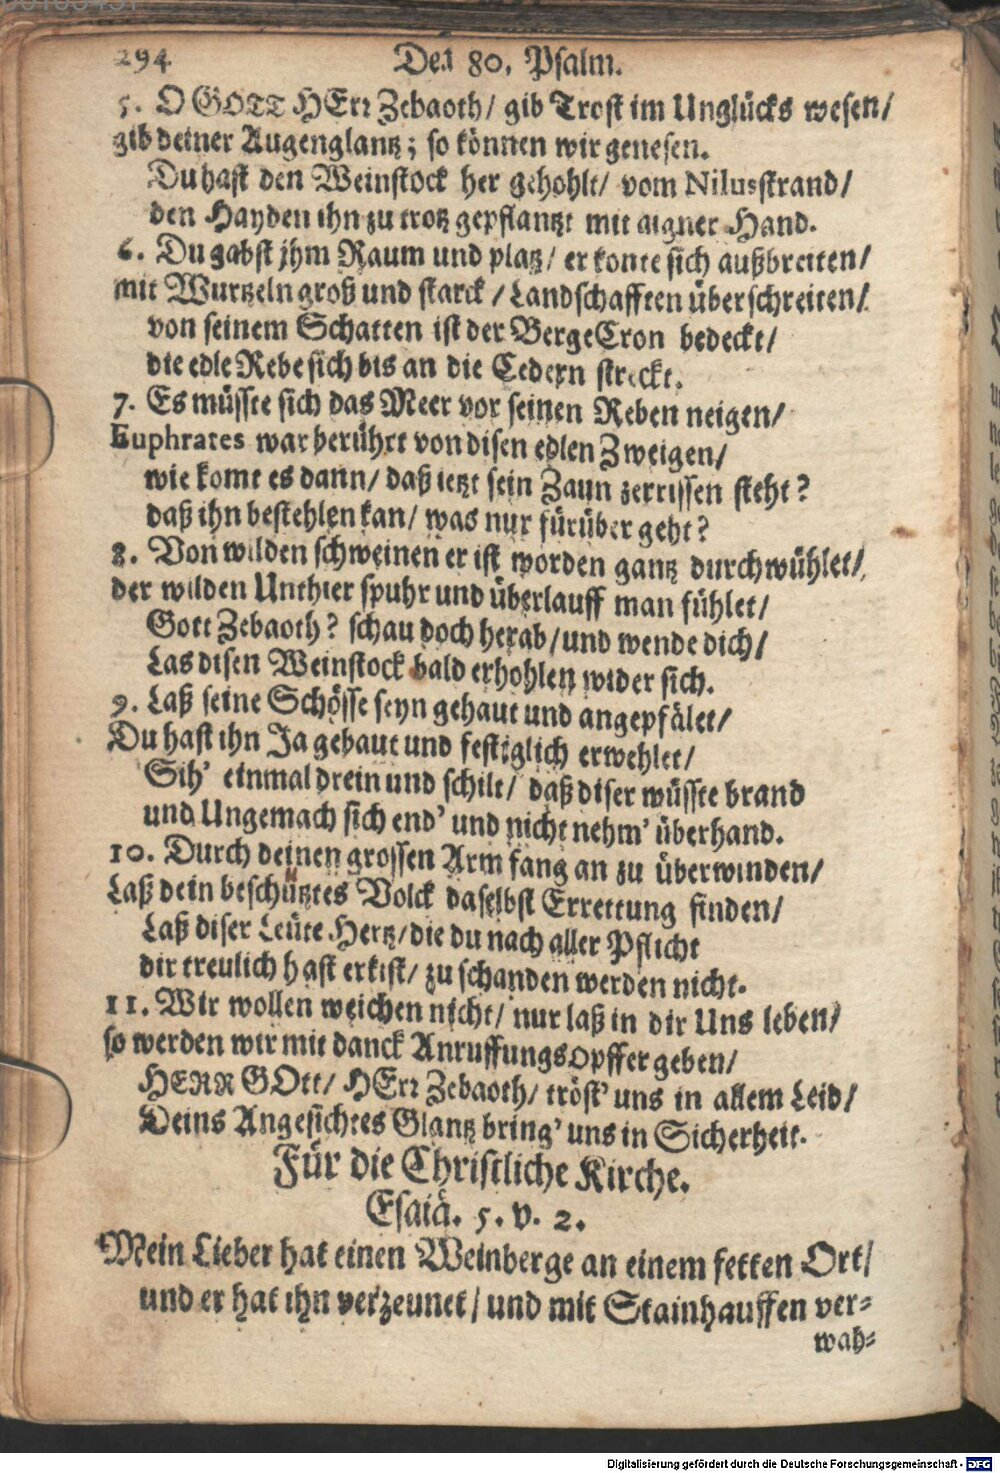 294 Der 80. Psalm.
5. O GOTT HErr Zebaoth/ gib Trost im Unglücks wesen/
gib deiner Augenglantz; so können wir genesen.
Du hast den Weinstock her gehohlt/ vom Nilusstrand/
den Hayden ihn zu trotz gepflantzt mit aigner Hand.
6. Du gabst jhm Raum und platz/ er konte sich außbreiten/
mit Wurtzeln groß und starck / Landschafften überschreiten/
von seinem Schatten ist der BergeCron bedeckt/
die edle Rebe sich bis an die Cedern streckt.
7. Es müsste sich das Meer vor seinen Reben neigen/
Euphrates war berührt von disen edlen Zweigen/
wie komt es dann/ daß ietzt sein Zaun zerrissen steht?
daß ihn bestehlen kan/ was nur fürüber geht?
8. Von wilden schweinen er ist worden gantz durchwühlet/
der wilden Unthier spuhr und überlauff man fühlet/
Gott Zebaoth? schau doch herab/ und wende dich/
Las disen Weinstock bald erhohlen wider sich.
9. Laß seine Schösse seyn gehaut und angepfälet/
Du hast ihn Ja gebaut und festiglich erwehlet/
Sih' einmal drein und schilt/ daß diser wüsste brand
und Ungemach sich end' und nicht nehm' überhand.
10. Durch deinen grossen Arm fang an zu überwinden/
Laß dein beschütztes Volck daselbst Errettung finden/
Laß diser Leüte Hertz/ die du nach aller Pflicht
dir treulich hast erkist/ zu schanden werden nicht.
11. Wir wollen weichen nicht/ nur laß in dir Uns leben/
so werden wir mit danck Anruffungsopffer geben/
HERR GOtt/ HErr Zebaoth/ tröst' uns in allem Leid/
Deins Angesichtes Glantz bring' uns in Sicherheit.
Für die Christliche Kirche.
Esaiä. 5. v. 2.
Mein Lieber hat einen Weinberge an einem fetten Ort/
und er hat ihn verzeunet/ und mit Stainhauffen ver-
wah-
Digitalisierung gefördert durch die Deutsche Forschungsgemeinschaft - DFG